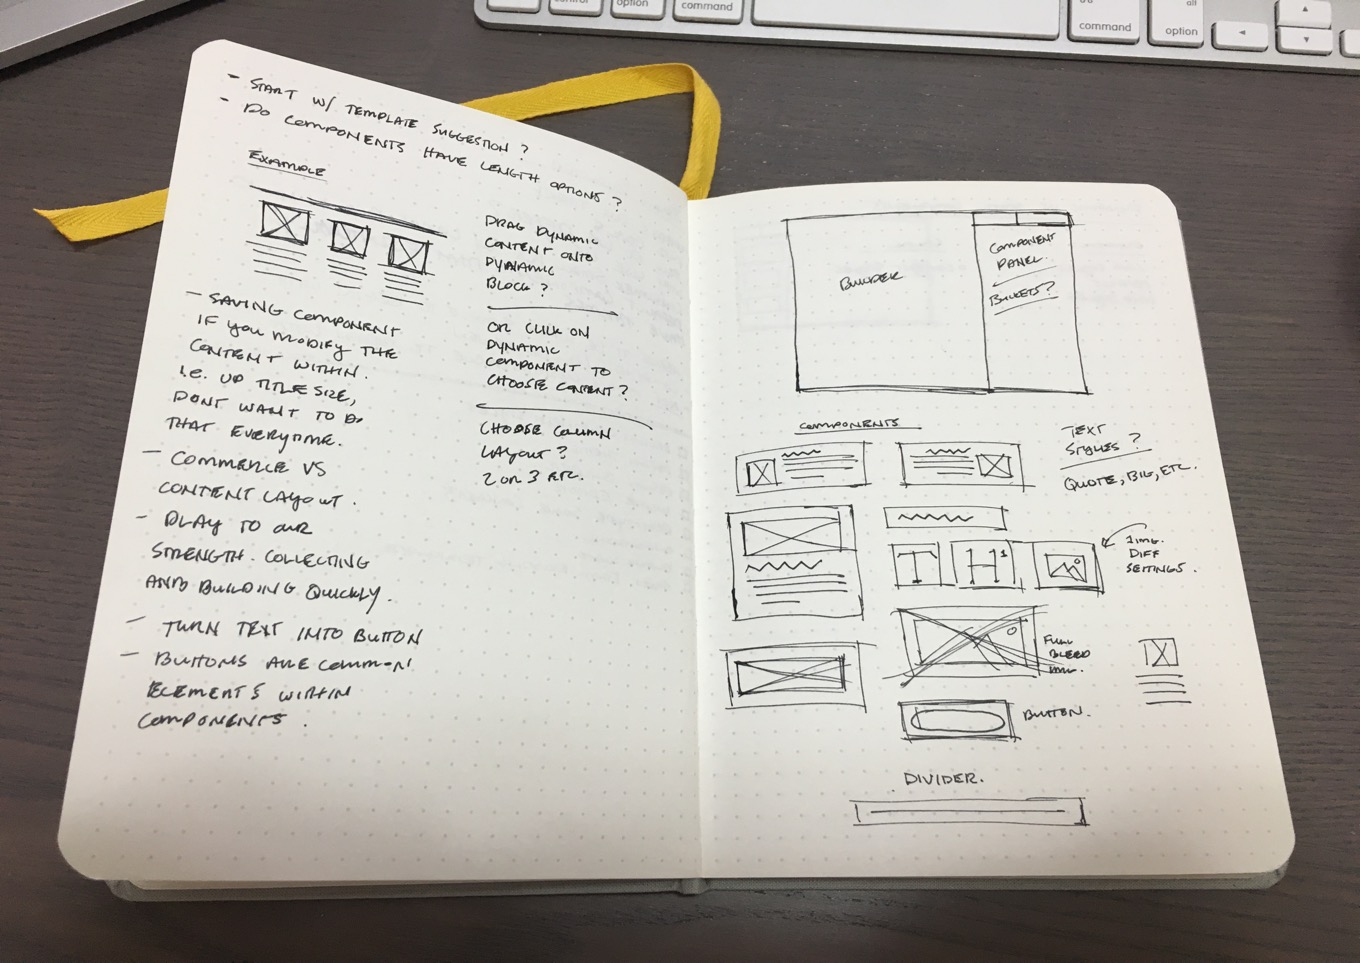 - START W/ TEMPLATE SUGGESTION?
- DO COMPONENTS HAVE LENGTH OPTIONS?
EXAMPLE
- SAVING COMPONENT
IF YOU MODIFY THE
CONTENT WITHIN.
I.E. UP TITLE SIZE,
DONT WANT TO DO
THAT EVERYTIME.
- COMMERCE VS
CONTENT LAYOUT.
- PLAY TO OUR
STRENGTH. COLLECTING
AND BUILDING QUICKLY.
- TURN TEXT INTO BUTTON
- BUTTONS ARE COMMON
ELEMENTS WITHIN
COMPONENTS.
DRAG DYNAMIC
CONTENT ONTO
DYNAMIC
BLOCK?
OR CLICK ON
DYNAMIC
COMPONENT TO
CHOOSE CONTENT?
CHOOSE COLUMN
LAYOUT?
2 OR 3 ETC.
BUILDER
COMPONENT
PANEL.
BUCKETS?
COMPONENTS
TEXT
STYLES?
QUOTE, BIG, ETC.
T
H1
1 IMG.
DIFF
SETTINGS.
FULL
BLEED
IMG.
BUTTON.
DIVIDER.
control
option
command
command
alt
option